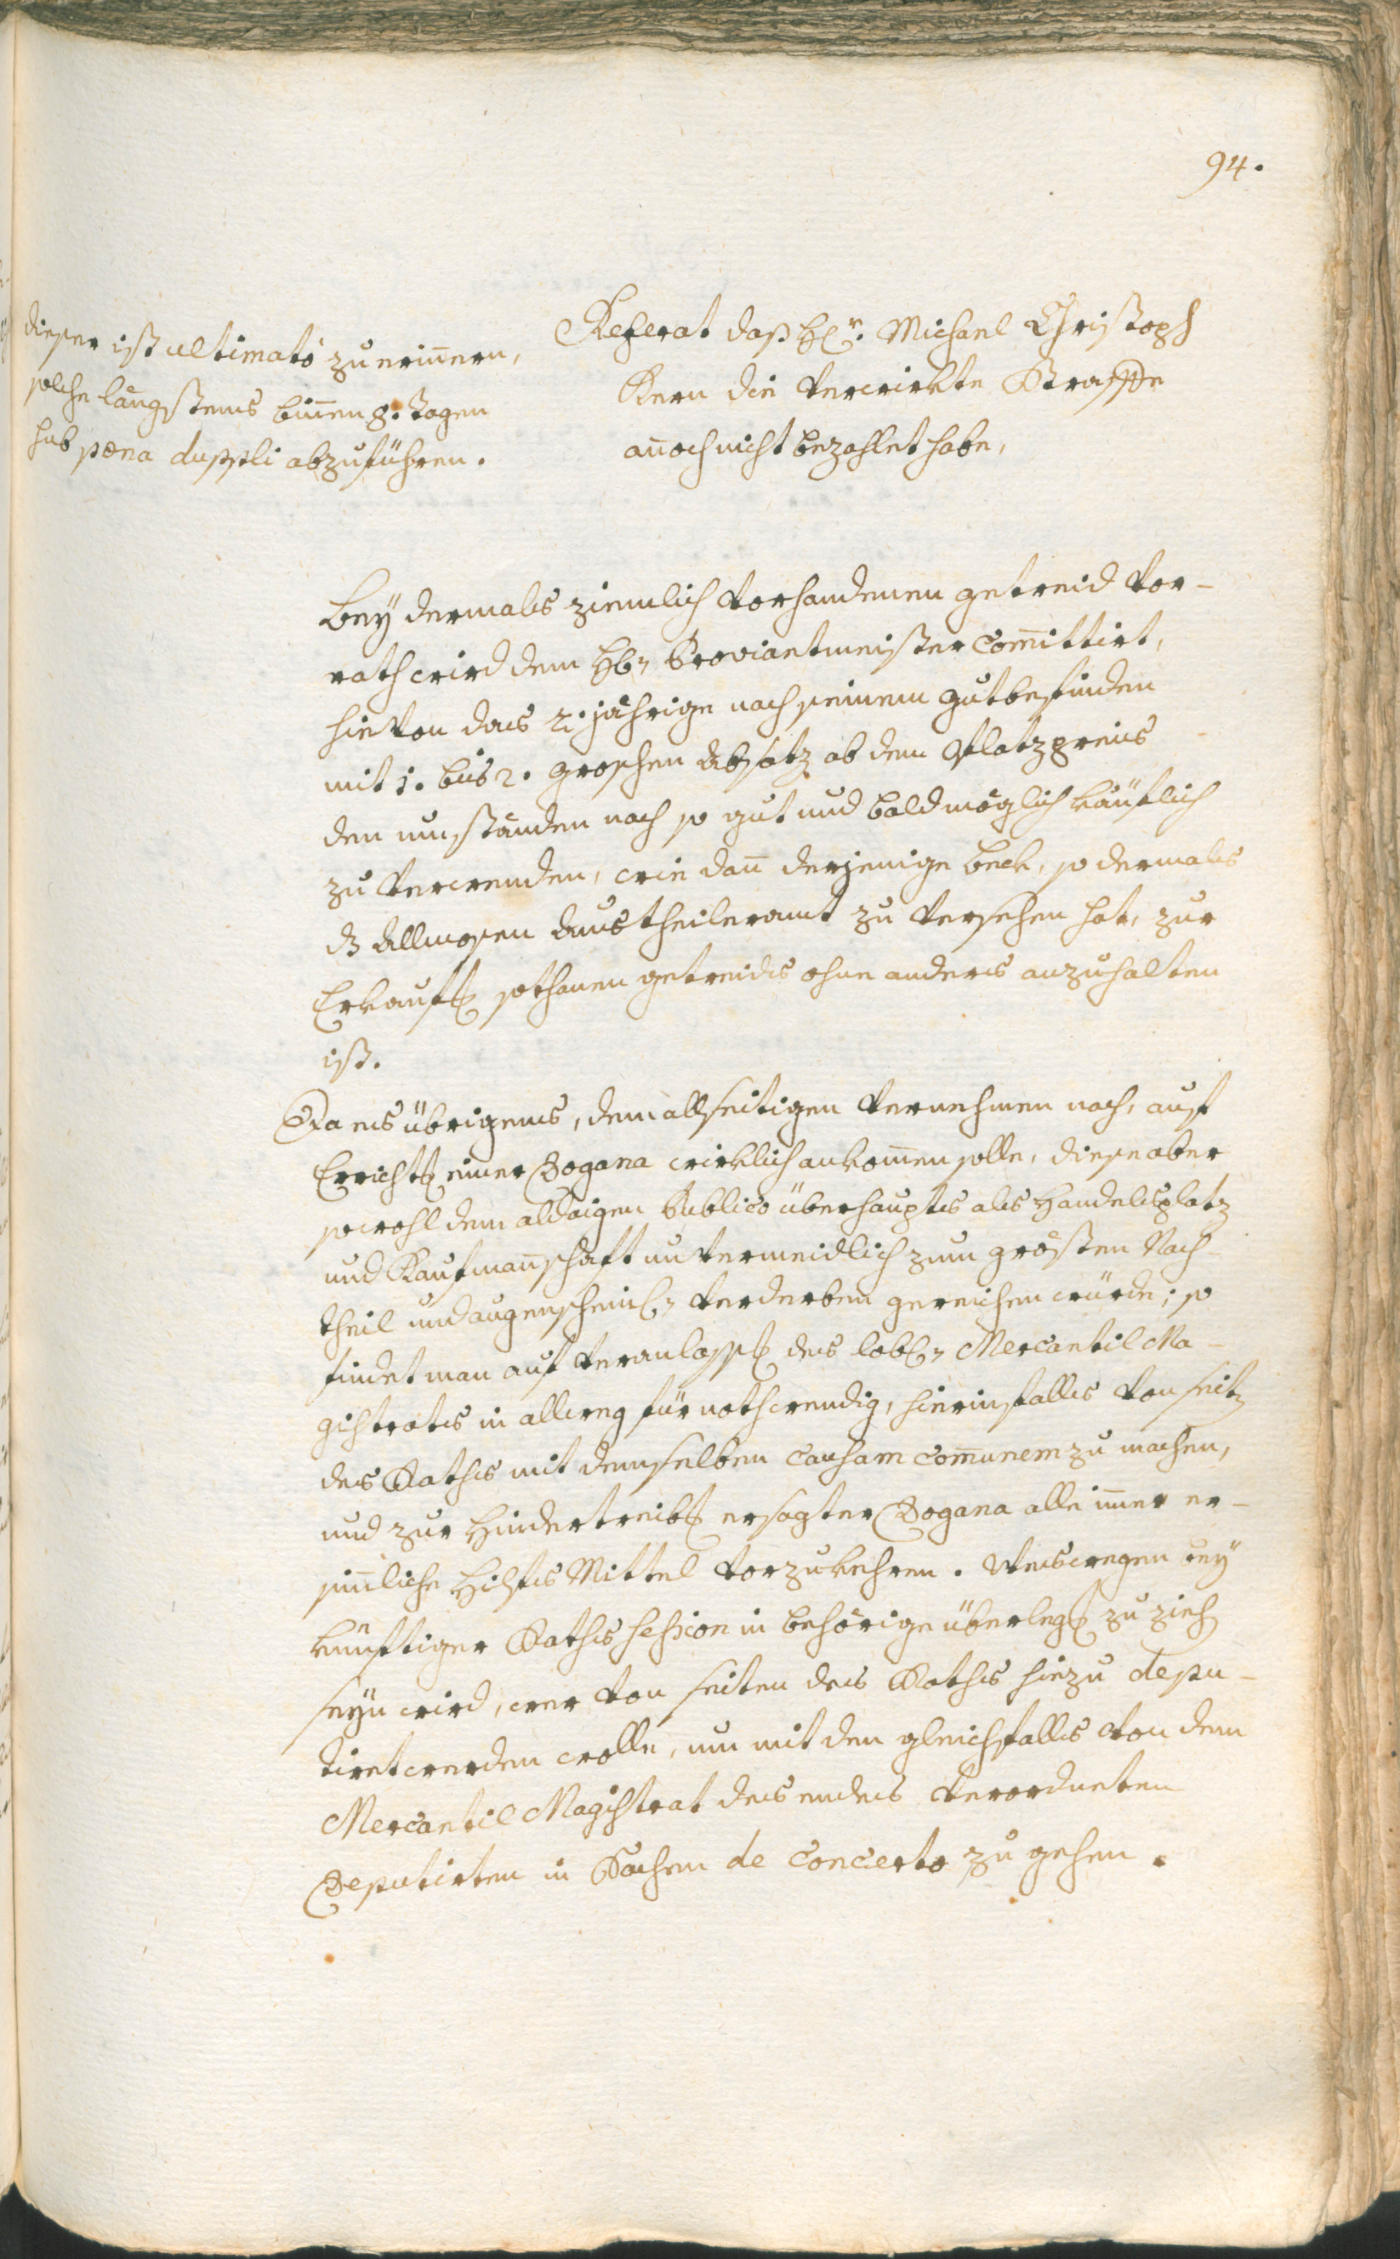 94.
dieser ist ultimato zu erinnern,
solche längstens binnen 8. tagen
sub pœna duppli abzuführen.
Referat daß H:r Michael Christoph
Kern die verwirkte Straffe
annoch nicht bezahlet habe,
Bey dermals ziemlich vorhandenen getreid vor-
rath wird dem H: Proviantmeister Committirt,
hievon das 2. jährige nach seinem gutbefinden
mit 1. bis 2. groschen absatz ab dem Platzpreis
den umständen nach so gut und bald möglich käuflich
zu verwenden, wie dann derjenige beck, so dermals
dz Allmosen austheileramt zu versehen hat, zur
Erkauffg sothanen getreids ohne anders anzuhalten
ist.
Da es übrigens, dem allseitigen vernehmen nach, auf
Errichtg einer Dogana wirklich ankommen solle, diese aber
sowohl dem aldaigen Publico überhaupts als Handelsplatz
und Kaufmannschaft unvermeidlich zum grösten Nach-
theil und augenscheinl: verderben gereichen würde; so
findet man auf veranlassg des lobl: Mercantil Ma-
gistrats in allweg für nothwendig, hierinfalls von seitz
des Raths mit demselben causam communem zu machen,
und zur Hindertreibg ersagter Dogana alle immer er-
sinnliche Hilfs Mittel vorzukehren. Weswegen bey
künftiger Raths session in behörige überlegg zu zieh
seyn wird, wer von seiten des Raths hiezu depu-
tiret werden wolle, um mit den gleichfalls von dem
Mercantil Magistrat des endes verordneten
Deputirten in Sachen de concerto zu gehen.